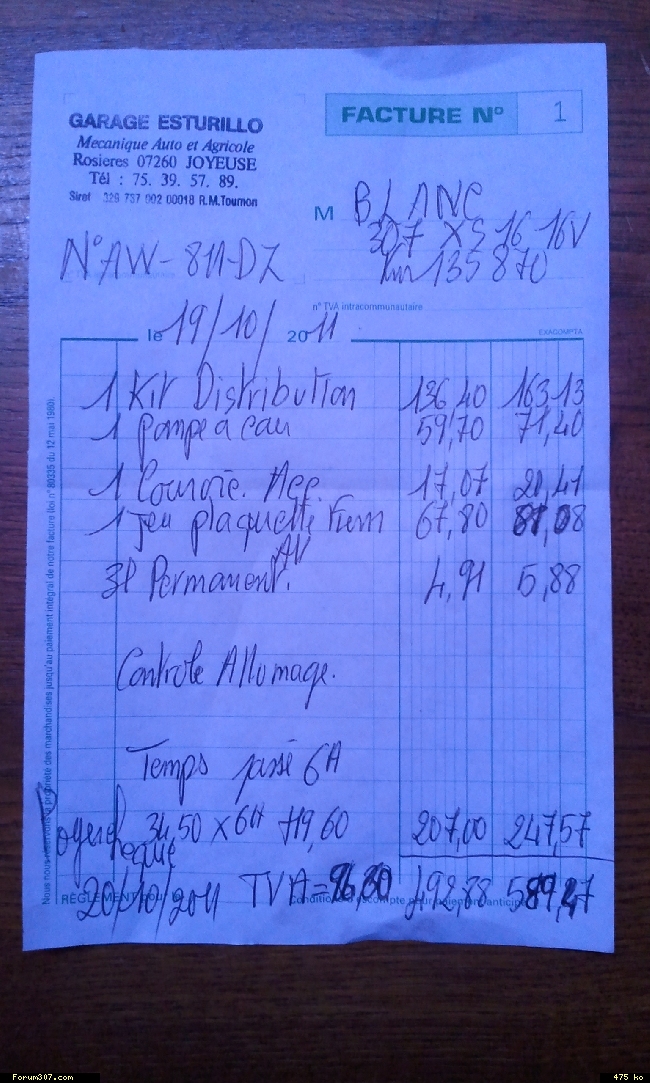 GARAGE ESTURILLO
Mecanique Auto et Agricole
Rosieres 07260 JOYEUSE
Tél : 75. 39. 57. 89.
Siret 326 737 002 00018 R.M.Tournon
FACTURE Nº 1
M BLANC
307 XS 16 16V
Km 135870
N° AW-811-DZ
n° TVA intracommunautaire
le 19/10/2011
EXACOMPTA
1 Kit Distribution 136,40 163,13
1 pompe a eau 59,70 71,40
1 Courroie. Acc. 17,07 20,41
1 Jeu plaquette Frein 67,80 81,08
AV
3l Permanent. 4,91 5,88
Controle Allumage.
Temps passé 6H
34,50 X 6H +19,60 207,00 247,57
cheque
20/10/2011 TVA = 96,30 492,88
RÈGLEMENT
Conditions d'escompte pour paiement anticipé
Nous nous réservons la propriété des marchandises jusqu'au paiement intégral de notre facture (loi n° 80335 du 12 mai 1980).
Forum307.com
475 ko